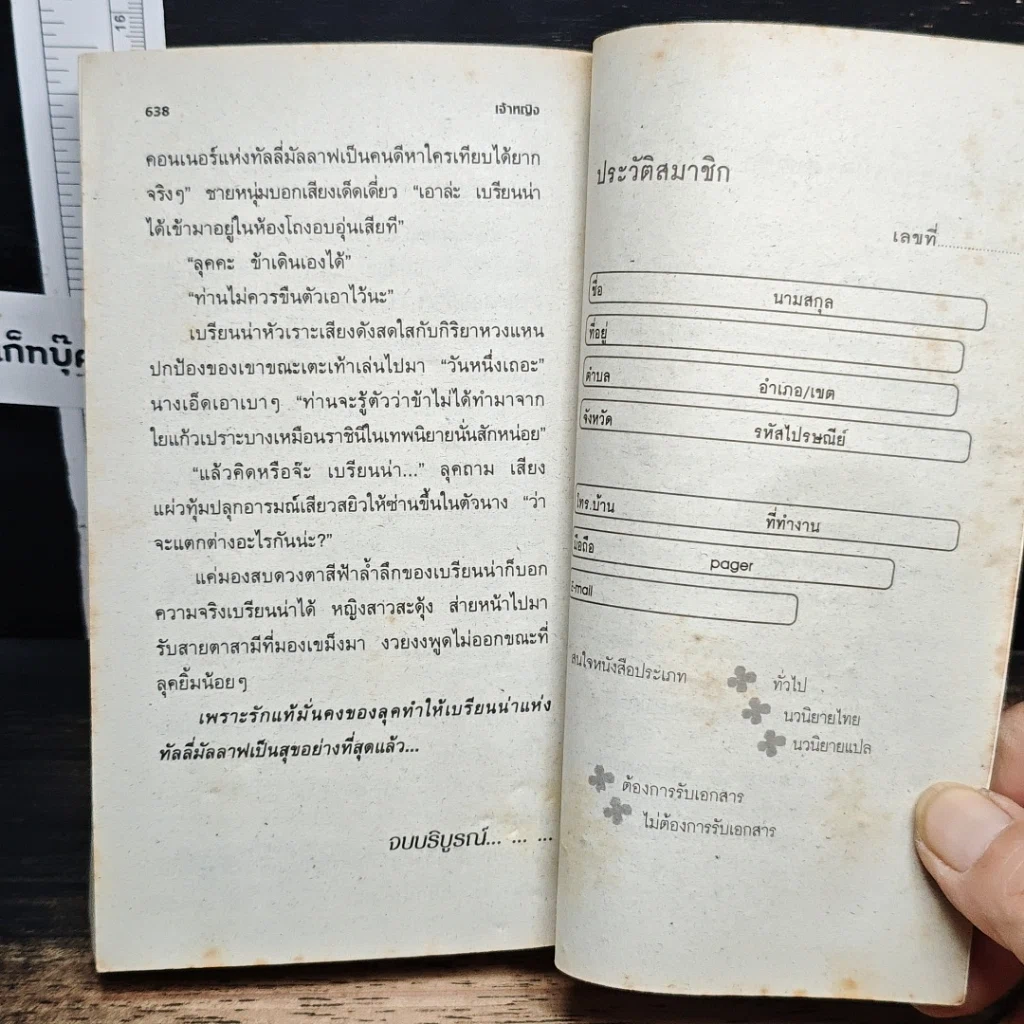 16
ก็ทบุ๊ค
638
เจ้าหญิง
คอนเนอร์แห่งทัลลี่มัลลาฟเป็นคนดีหาใครเทียบได้ยาก
จริงๆ” ชายหนุ่มบอกเสียงเด็ดเดี่ยว “เอาล่ะ เบรียนน่า
ได้เข้ามาอยู่ในห้องโถงอบอุ่นเสียที”
“ลุคคะ ข้าเดินเองได้”
“ท่านไม่ควรขืนตัวเอาไว้นะ”
เบรียนน่าหัวเราะเสียงดังสดใสกับกิริยาหวงแหน
ปกป้องของเขาขณะเตะเท้าเล่นไปมา “วันหนึ่งเถอะ”
นางเอ็ดเอาเบาๆ “ท่านจะรู้ตัวว่าข้าไม่ได้ทำมาจาก
ใยแก้วเปราะบางเหมือนราชินีในเทพนิยายนั่นสักหน่อย”
“แล้วคิดหรือจ๊ะ เบรียนน่า...” ลุคถาม เสียง
แผ่วทุ้มปลุกอารมณ์เสียวสยิวให้ซ่านขึ้นในตัวนาง “ว่า
จะแตกต่างอะไรกันน่ะ?”
แค่มองสบดวงตาสีฟ้าล้ำลึกของเบรียนน่าก็บอก
ความจริงเบรียนน่าได้ หญิงสาวสะดุ้ง ส่ายหน้าไปมา
รับสายตาสามีที่มองเขม็งมา งวยงงพูดไม่ออกขณะที่
ลุคยิ้มน้อยๆ
เพราะรักแท้มั่นคงของลุคทำให้เบรียนน่าแห่ง
ทัลลี่มัลลาฟเป็นสุขอย่างที่สุดแล้ว...
จบบริบูรณ์... ... ...
ประวัติสมาชิก
เลขที่....................
ชื่อ นามสกุล
ที่อยู่
ตำบล อำเภอ/เขต
จังหวัด รหัสไปรษณีย์
โทร.บ้าน ที่ทำงาน
มือถือ pager
E-mail
สนใจหนังสือประเภท ทั่วไป
นวนิยายไทย
นวนิยายแปล
ต้องการรับเอกสาร
ไม่ต้องการรับเอกสาร